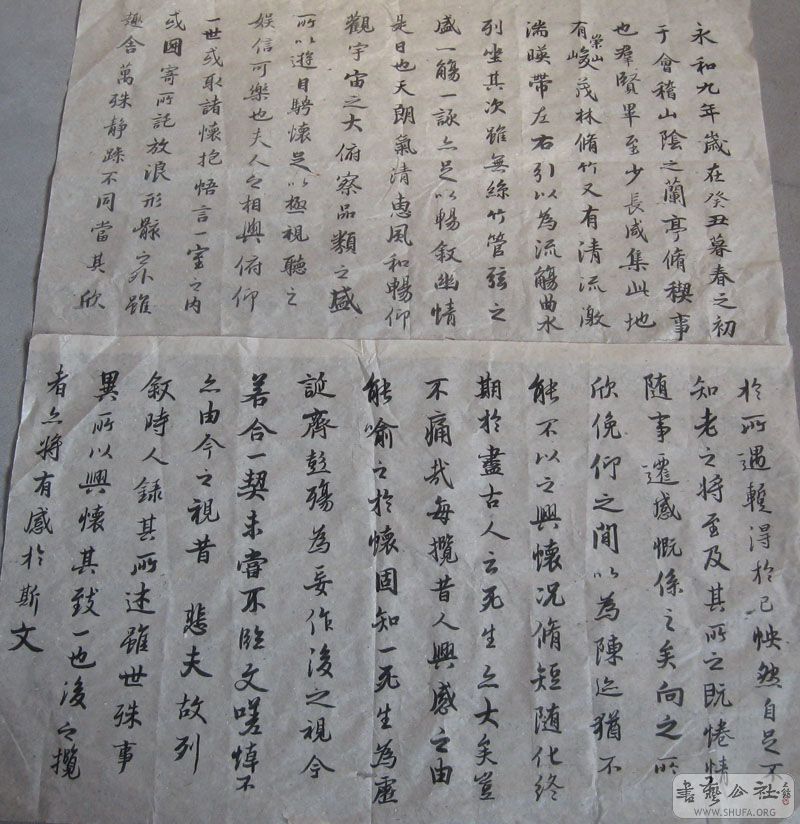 永和九年歲在癸丑暮春之初
于會稽山陰之蘭亭脩稧事
也羣賢畢至少長咸集此地
有崇山峻茂林脩竹又有清流激
湍暎帶左右引以為流觴曲水
列坐其次雖無絲竹管弦之
盛一觴一詠亦足以暢敘幽情
是日也天朗氣清惠風和暢仰
觀宇宙之大俯察品類之盛
所以遊目騁懷足以極視聽之
娛信可樂也夫人之相與俯仰
一世或取諸懷抱悟言一室之內
或因寄所託放浪形骸之外雖
趣舍萬殊静躁不同當其欣
於所遇蹔得於己怏然自足不
知老之將至及其所之既惓情
隨事遷感慨係之矣向之所
欣俛仰之間以為陳迹猶不
能不以之興懷况脩短随化終
期於盡古人云死生亦大矣豈
不痛哉每攬昔人興感之由
能喻之於懷固知一死生為虛
誕齊彭殤為妄作後之視今
若合一契未嘗不臨文嗟悼不
亦由今之視昔 悲夫故列
敘時人錄其所述雖世殊事
異所以興懷其致一也後之攬
者亦將有感於斯文
書藝公社
WWW.SHUFA.ORG